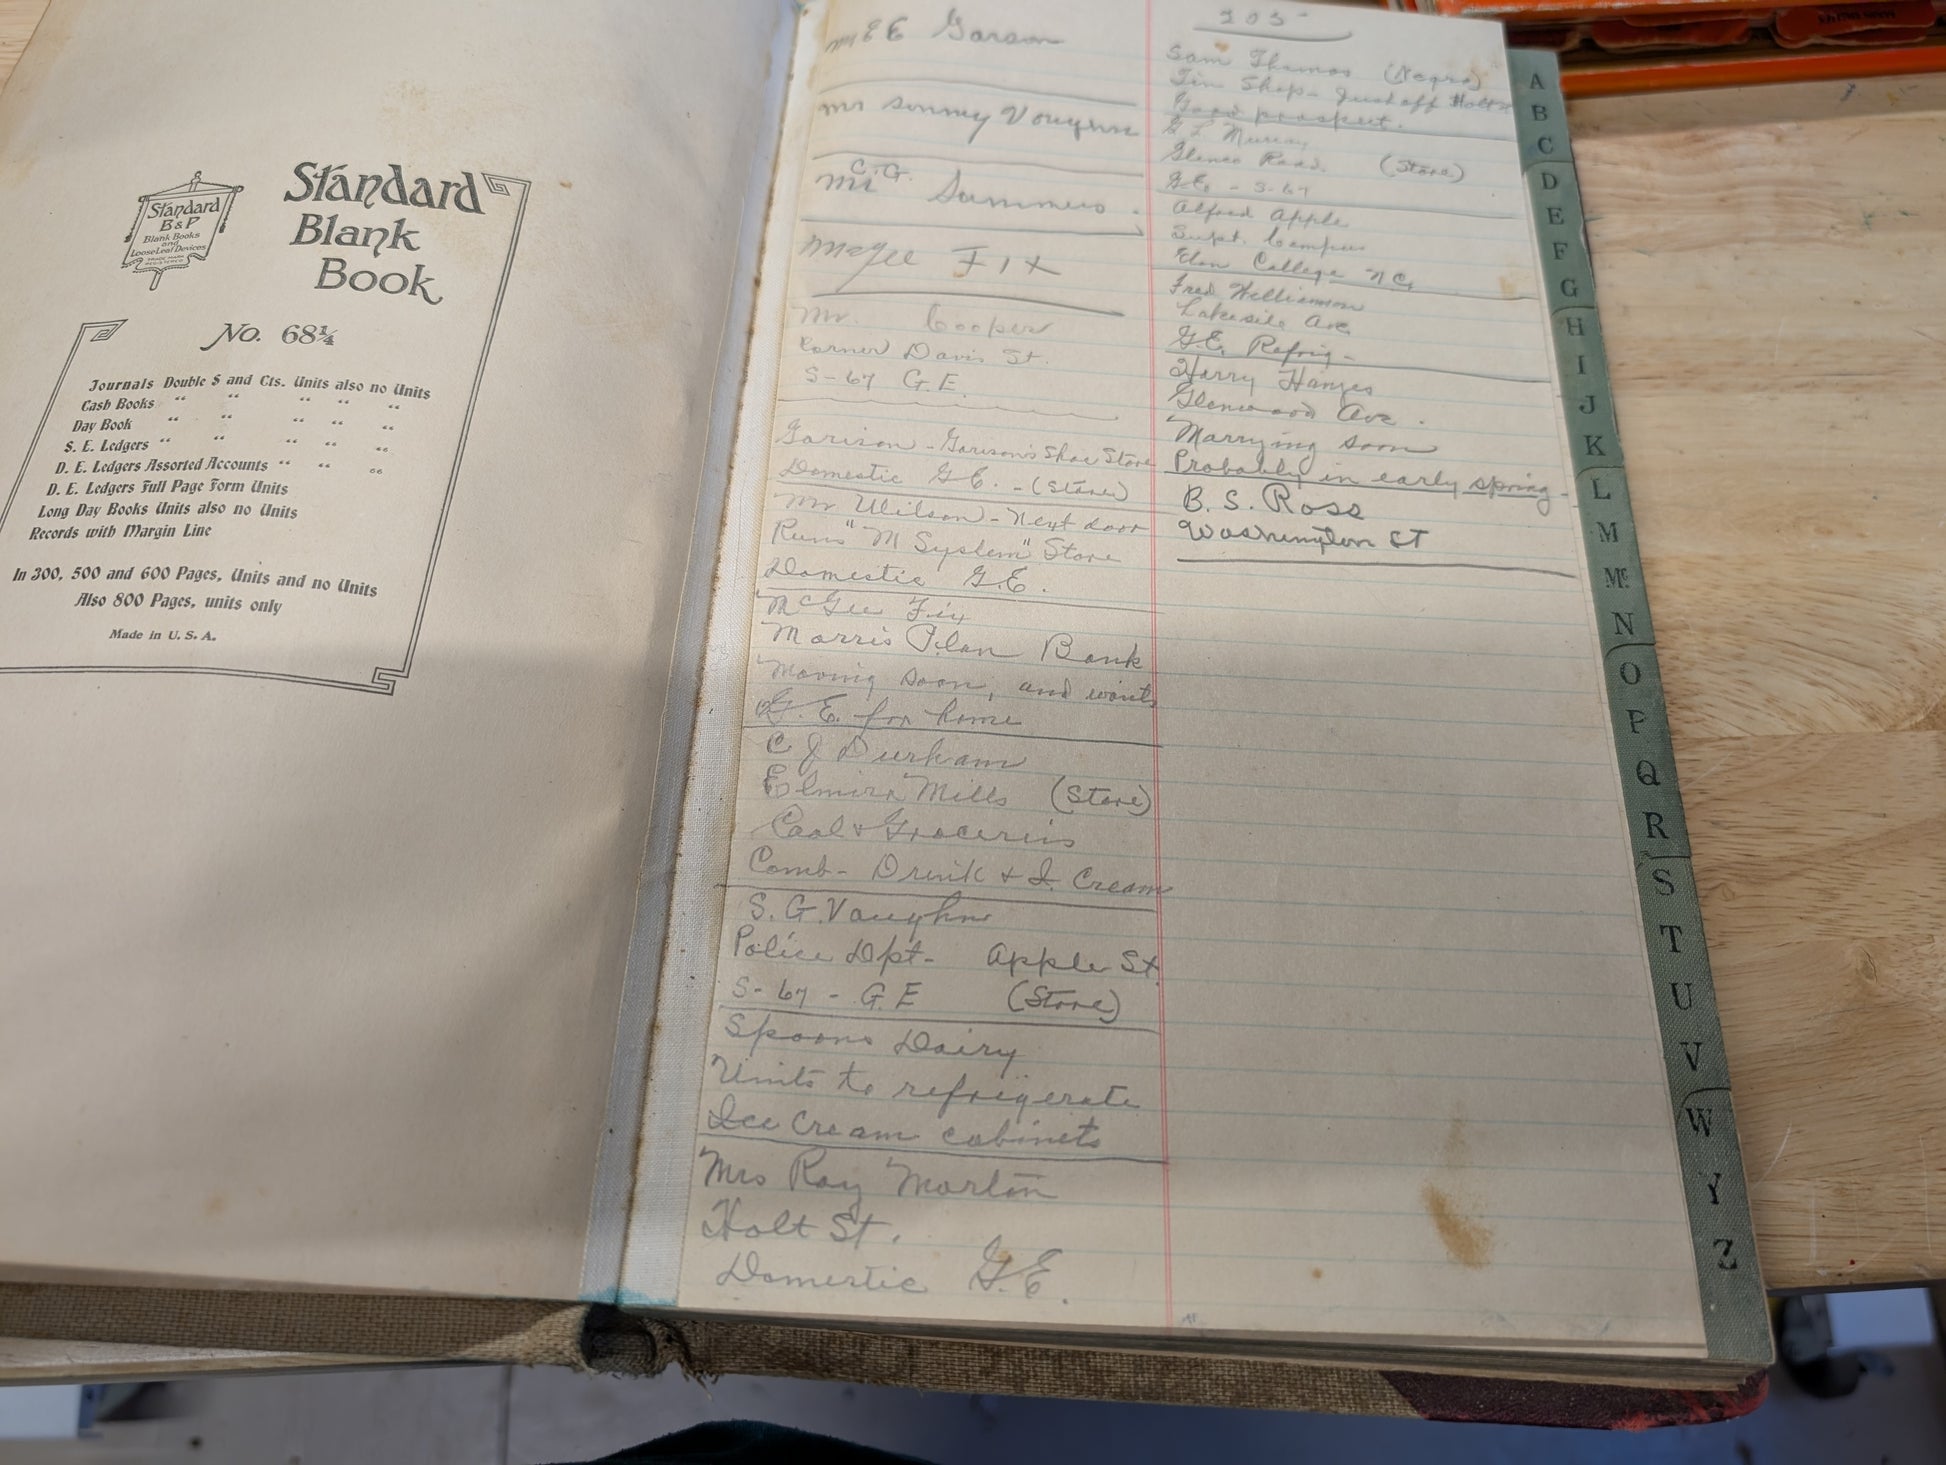 Standard
B&P
Blank Books
and
Loose Leaf Devices
TRADE MARK
REGISTERED
Standard
Blank
Book
No. 68¼
Journals Double $ and Cts. Units also no Units
Cash Books “ “ “ “ “
Day Book “ “ “ “ “
S. E. Ledgers “ “ “ “ “
D. E. Ledgers Assorted Accounts “ “ “
D. E. Ledgers Full Page Form Units
Long Day Books Units also no Units
Records with Margin Line
In 300, 500 and 600 Pages, Units and no Units
Also 800 Pages, units only
Made in U. S. A.
Mr Sonny Vaughnn
C.G.
Mr Summers.
McGee Fix
Mr. Cooper
Corner Davis St.
S-67 G.E.
Garison - Garison's Shoe Store
Domestic G.E. - (Store)
Mr Wilson - Next door
Runs "M System" Store
Domestic G.E.
McGee Fix
Morris Plan Bank
Moving soon, and wants
G.E. for home
C J Durham
Elmira Mills (Store)
Coal & Groceries
Comb- Drink & I. Cream
S. G. Vaughn
Police Dpt- Apple St.
S-67 - G.E (Store)
Spoons Dairy
Units to refrigerate
Ice Cream cabinets
Mrs Ray Morton
Holt St.
Domestic G.E.
205
Sam Thomas (Negro)
Tin Shop - Just off Holt St
Good prospect.
G L Murray
Glenco Road. (Store)
G.E. - S-67
Alfred Apple
Supt. Campus
Elon College N C.
Fred Williamson
Lakeside Ave
G.E. Refrig-
Harry Hanges
Glenwood Ave.
Marrying soon
Probably in early spring-
B. S. Ross
Washington ST
A
B
C
D
E
F
G
H
I
J
K
L
M
Mc
N
O
P
Q
R
S
T
U
V
W
Y
Z